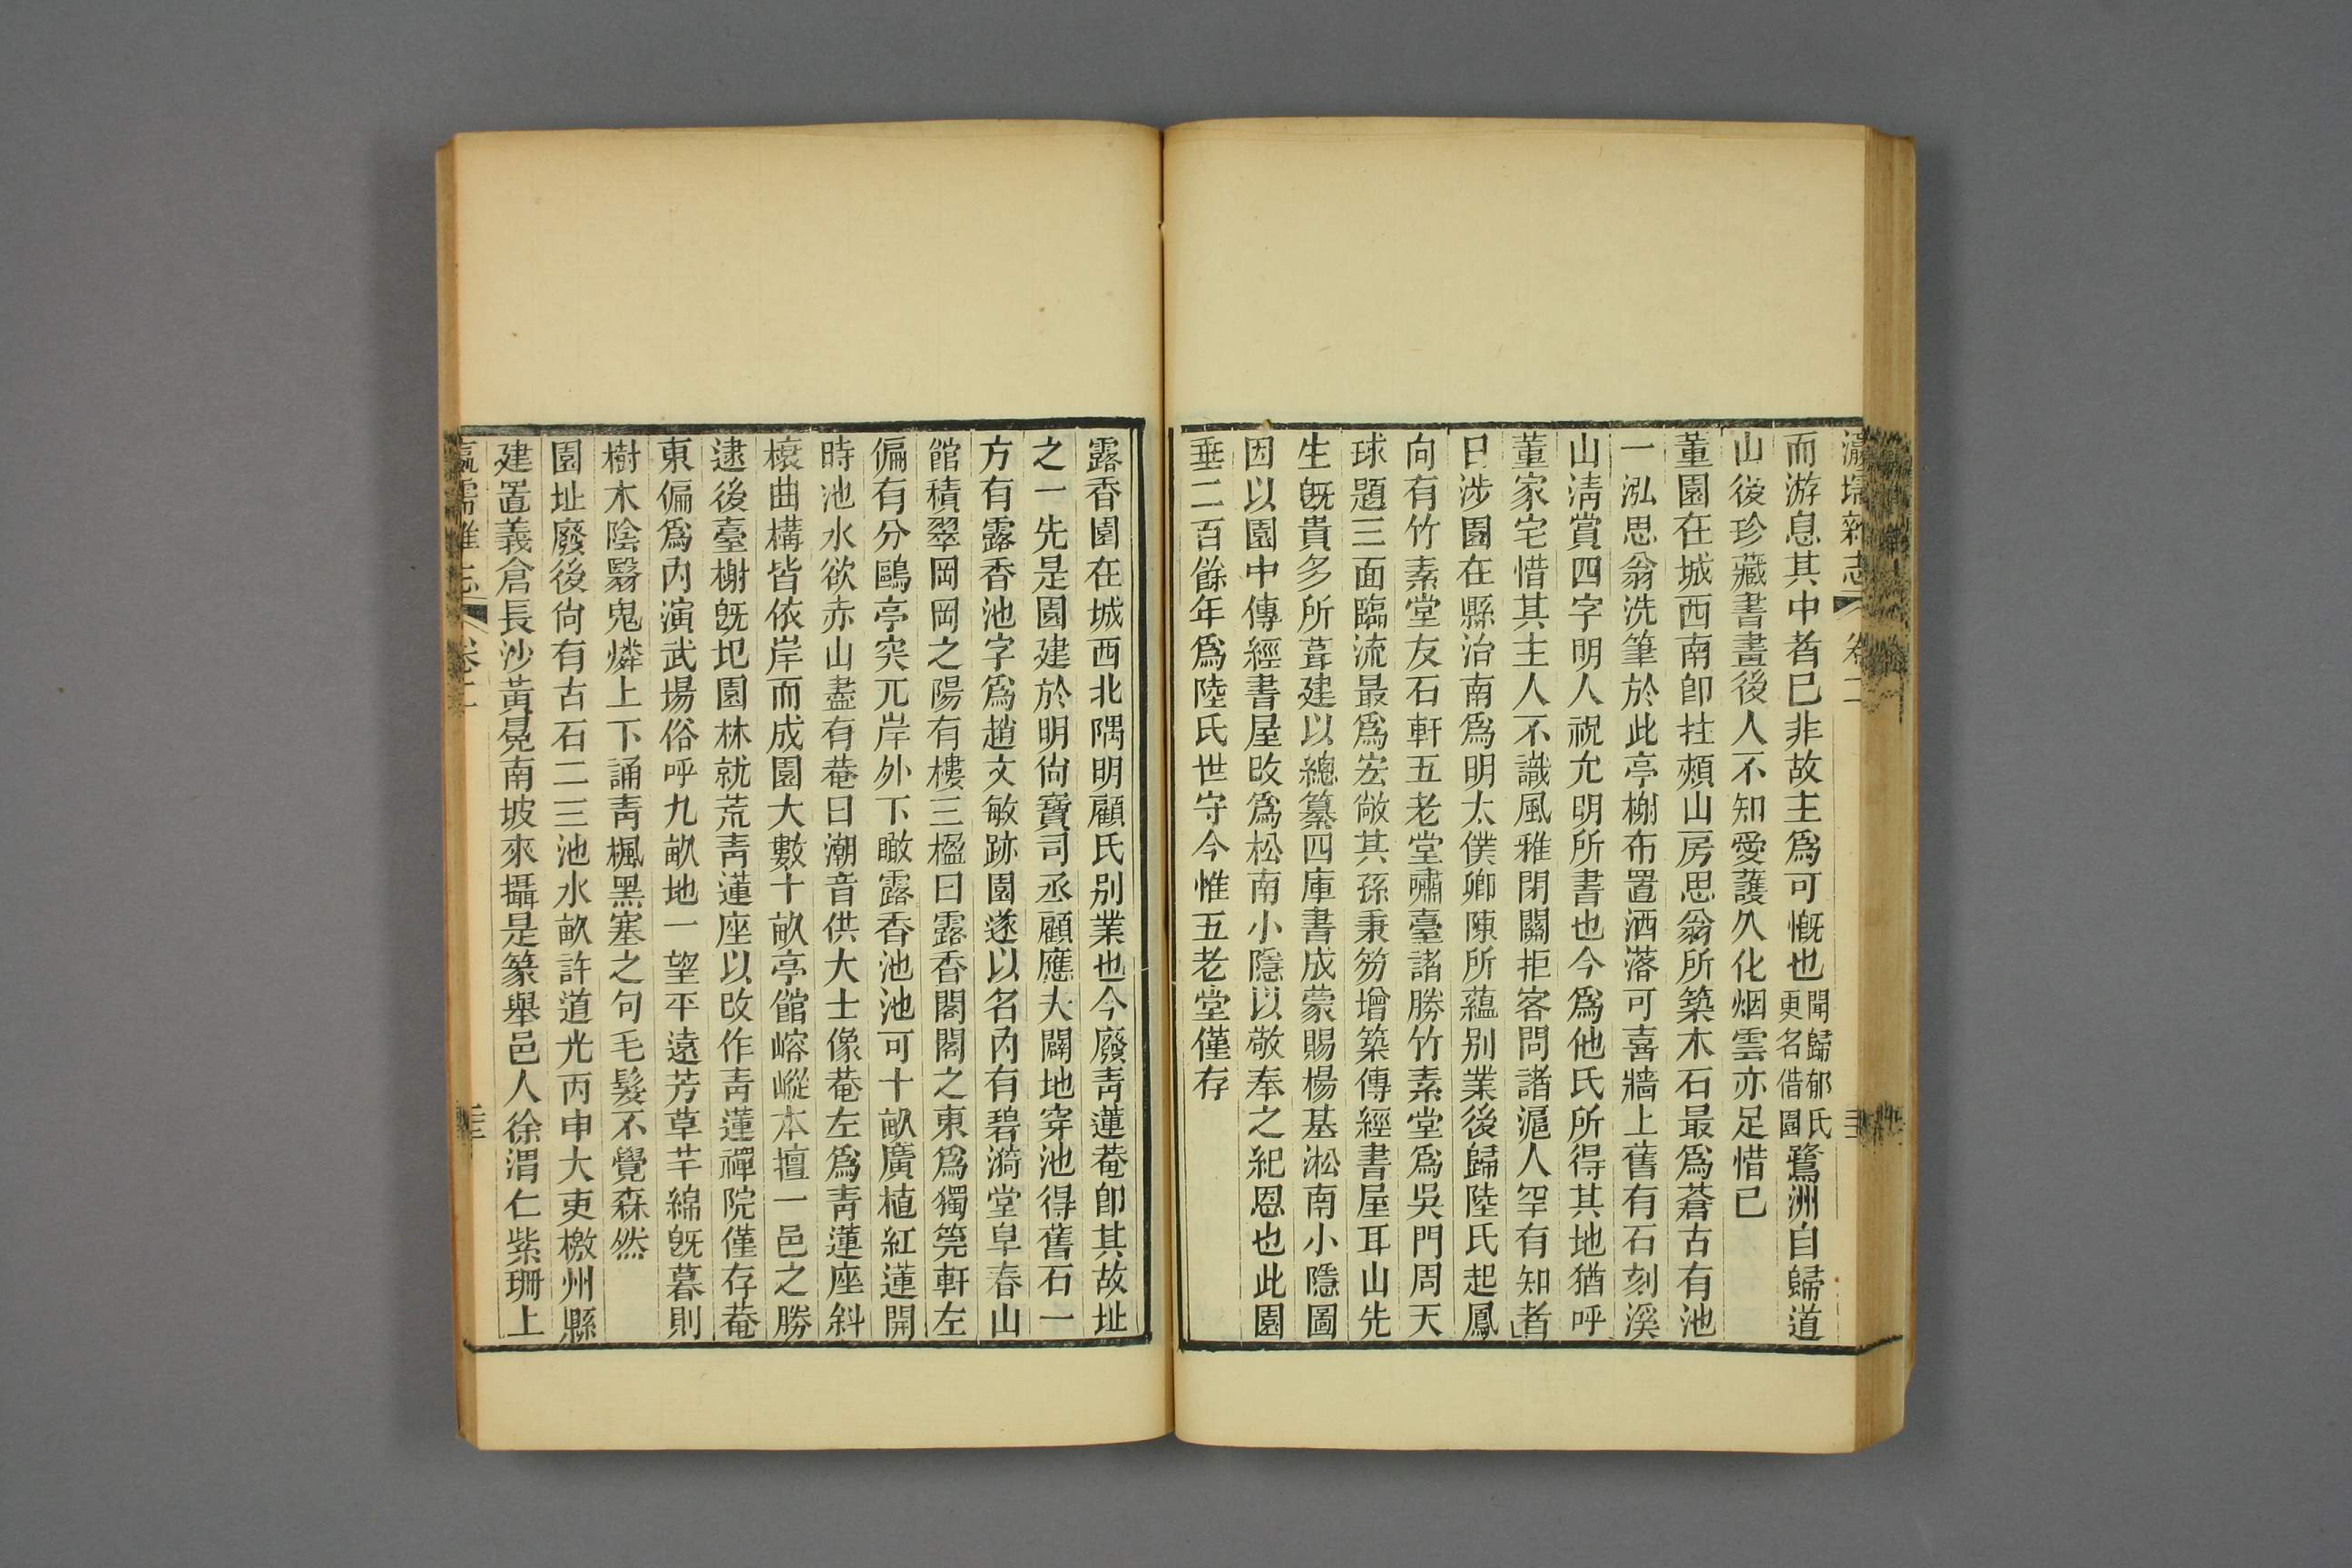 瀛壖雜志 卷二
而游息其中者已非故主爲可慨也聞歸郁氏更名借園鷺洲自歸道
山後珍藏書畫後人不知愛護久化烟雲亦足惜已
董園在城西南卽拄頰山房思翁所築木石最爲蒼古有池
一泓思翁洗筆於此亭榭布置洒落可喜牆上舊有石刻溪
山淸賞四字明人祝允明所書也今爲他氏所得其地猶呼
董家宅惜其主人不識風雅閉關拒客問諸滬人罕有知者
日涉園在縣治南爲明太僕卿陳所蘊别業後歸陸氏起鳳
向有竹素堂友石軒五老堂嘯臺諸勝竹素堂爲吳門周天
球題三面臨流最爲宏敞其孫秉笏增築傳經書屋耳山先
生旣貴多所葺建以總纂四庫書成蒙賜楊基淞南小隱圖
因以園中傳經書屋改爲松南小隱以敬奉之紀恩也此園
垂二百餘年爲陸氏世守今惟五老堂僅存
露香園在城西北隅明顧氏别業也今廢靑蓮菴卽其故址
之一先是園建於明尙寶司丞顧應夫闢地穿池得舊石一
方有露香池字爲趙文敏跡園遂以名內有碧漪堂阜春山
館積翠岡岡之陽有樓三楹曰露香閣閣之東爲獨筦軒左
偏有分鷗亭突兀岸外下瞰露香池池可十畝廣植紅蓮開
時池水欲赤山盡有菴曰潮音供大士像菴左爲靑蓮座斜
榱曲構皆依岸而成園大數十畝亭館嵱嵷本擅一邑之勝
逮後臺榭旣圯園林就荒靑蓮座以改作靑蓮禪院僅存菴
東偏爲內演武場俗呼九畝地一望平遠芳草芊綿旣暮則
樹木陰翳鬼燐上下誦靑楓黑塞之句毛髮不覺森然
園址廢後尙有古石二三池水畝許道光丙申大吏檄州縣
建置義倉長沙黃冕南坡來攝是篆舉邑人徐渭仁紫珊上
瀛壖雜志 卷二